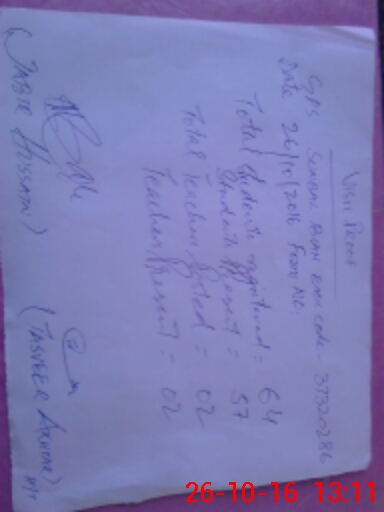 Visit Proof
GPS Sumbal Bran Emis code - 37320286
Date 26/10/2016 From No.
Total Students registered = 64
Students Present = 57
Total Teachers Posted = 02
Teachers Present = 02
(JABIR HUSSAIN)
(TASVEER AKHTAR)
26-10-16 13:11